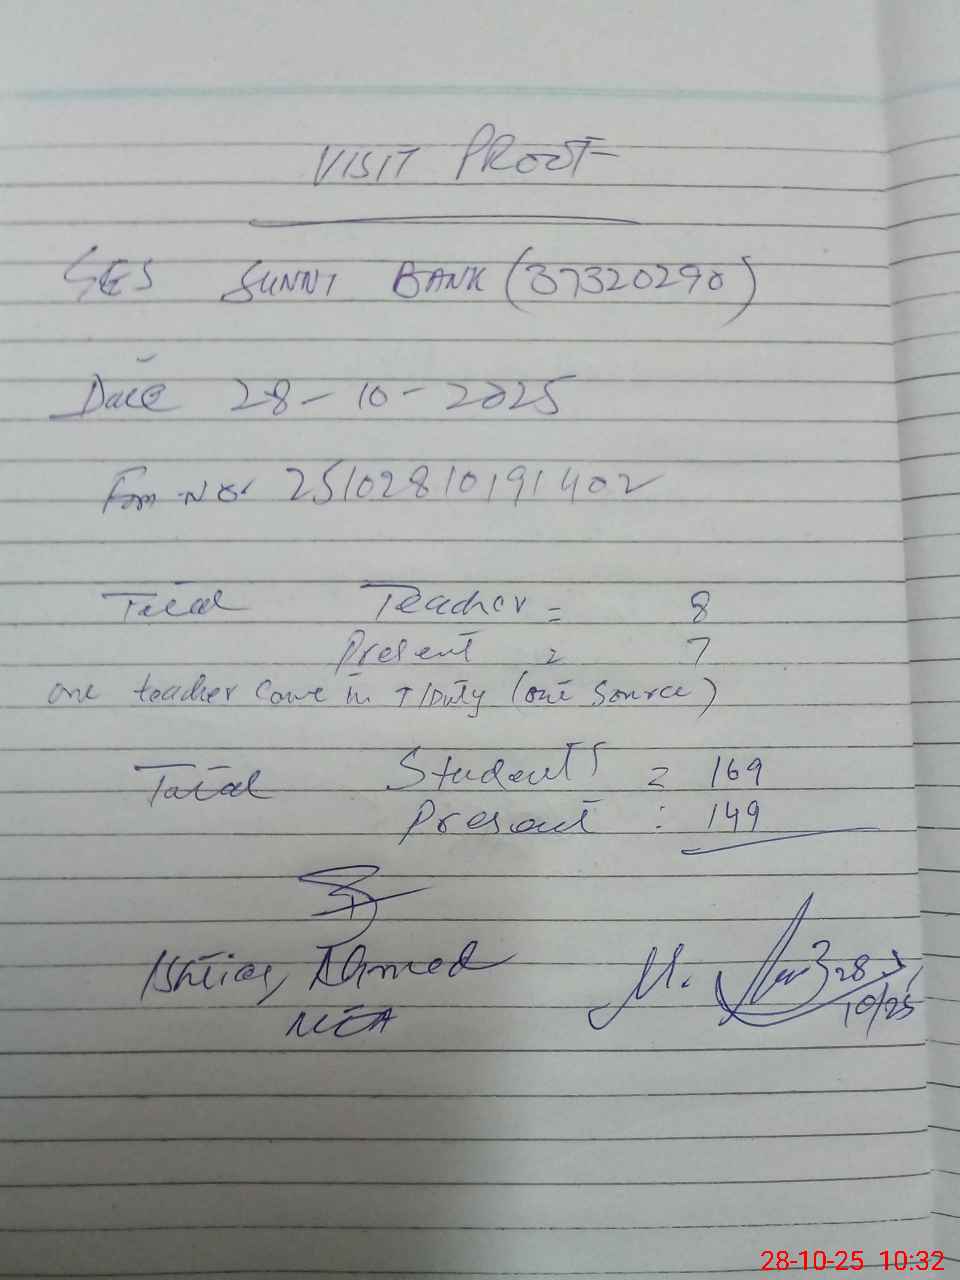 VISIT PROOF
GES SUNNI BANK (37320290)
Date 28-10-2025
Form No. 25102810191402
Total Teacher = 8
Present = 7
one teacher come in T/Duty (one source)
Total Students = 169
Present : 149
Ishtiaq Ahmed
MEA
M. 28
10/25
28-10-25 10:32